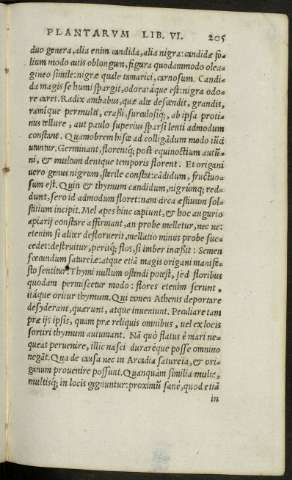 PLANTARVM LIB. VI. 205
duo genera, alia enim candida, alia nigra: candidæ fo-
lium modo acũs oblongum, figura quodammodo olea-
gineo simile: nigræ quale tamarici, carnosum. Candi-
da magis se humi spargit, odoratáque est: nigra odo-
re caret. Radix ambabus, quæ altè descendit, grandis,
ramíque permulti, crassi, surculosíq; ab ipsa protí-
nus tellure, aut paulo superius sparsi lenti admodum
constant. Quamobrem his ad colligãdum modo
utuntur. Germinant, florentq; post æquinoctium autũ-
ni, & multum denique temporis florent. Et origani
uero genus nigrum, sterile constat: cãdidum, fructuo-
sum est. Quin & thymum candidum, nigrúmq; red-
dunt, sero id admodum floret: nam circa æstiuum sol-
stitium incipit. Mel apes hinc capiunt, & hoc augurio
apiarij constare affirmant, an probe mellitet, nec ne:
etenim si aliter defloruerit, mellatio minus probe succ-
cedet: destruitur, peritq; flos, si imber inæstiat: Semen
fœcundum satureiæ: atque etiã magis origani manife-
sto sentitur. Thymi nullum ostendi potest, sed floribus
quodam permiscetur modo: flores etenim serunt,
itáque oritur thymum. Qui uonem Athenis deporare
desyderant, quærunt, atque inueniunt. Peculiare tam
præ ijs ipsis, quam præ reliquis omnibus, uel ex locis
sortiri thymum autumant. Nã quò flatus è mari ne-
queat peruenire, illic nasci duraréque posse omnino
negãt. Qua de causa nec in Arcadia satureia, & ori-
ganum prouenire possunt. Quanquam similia multæ,
multisq; in locis gignuntur: proximũ sanè, quod etiã
in